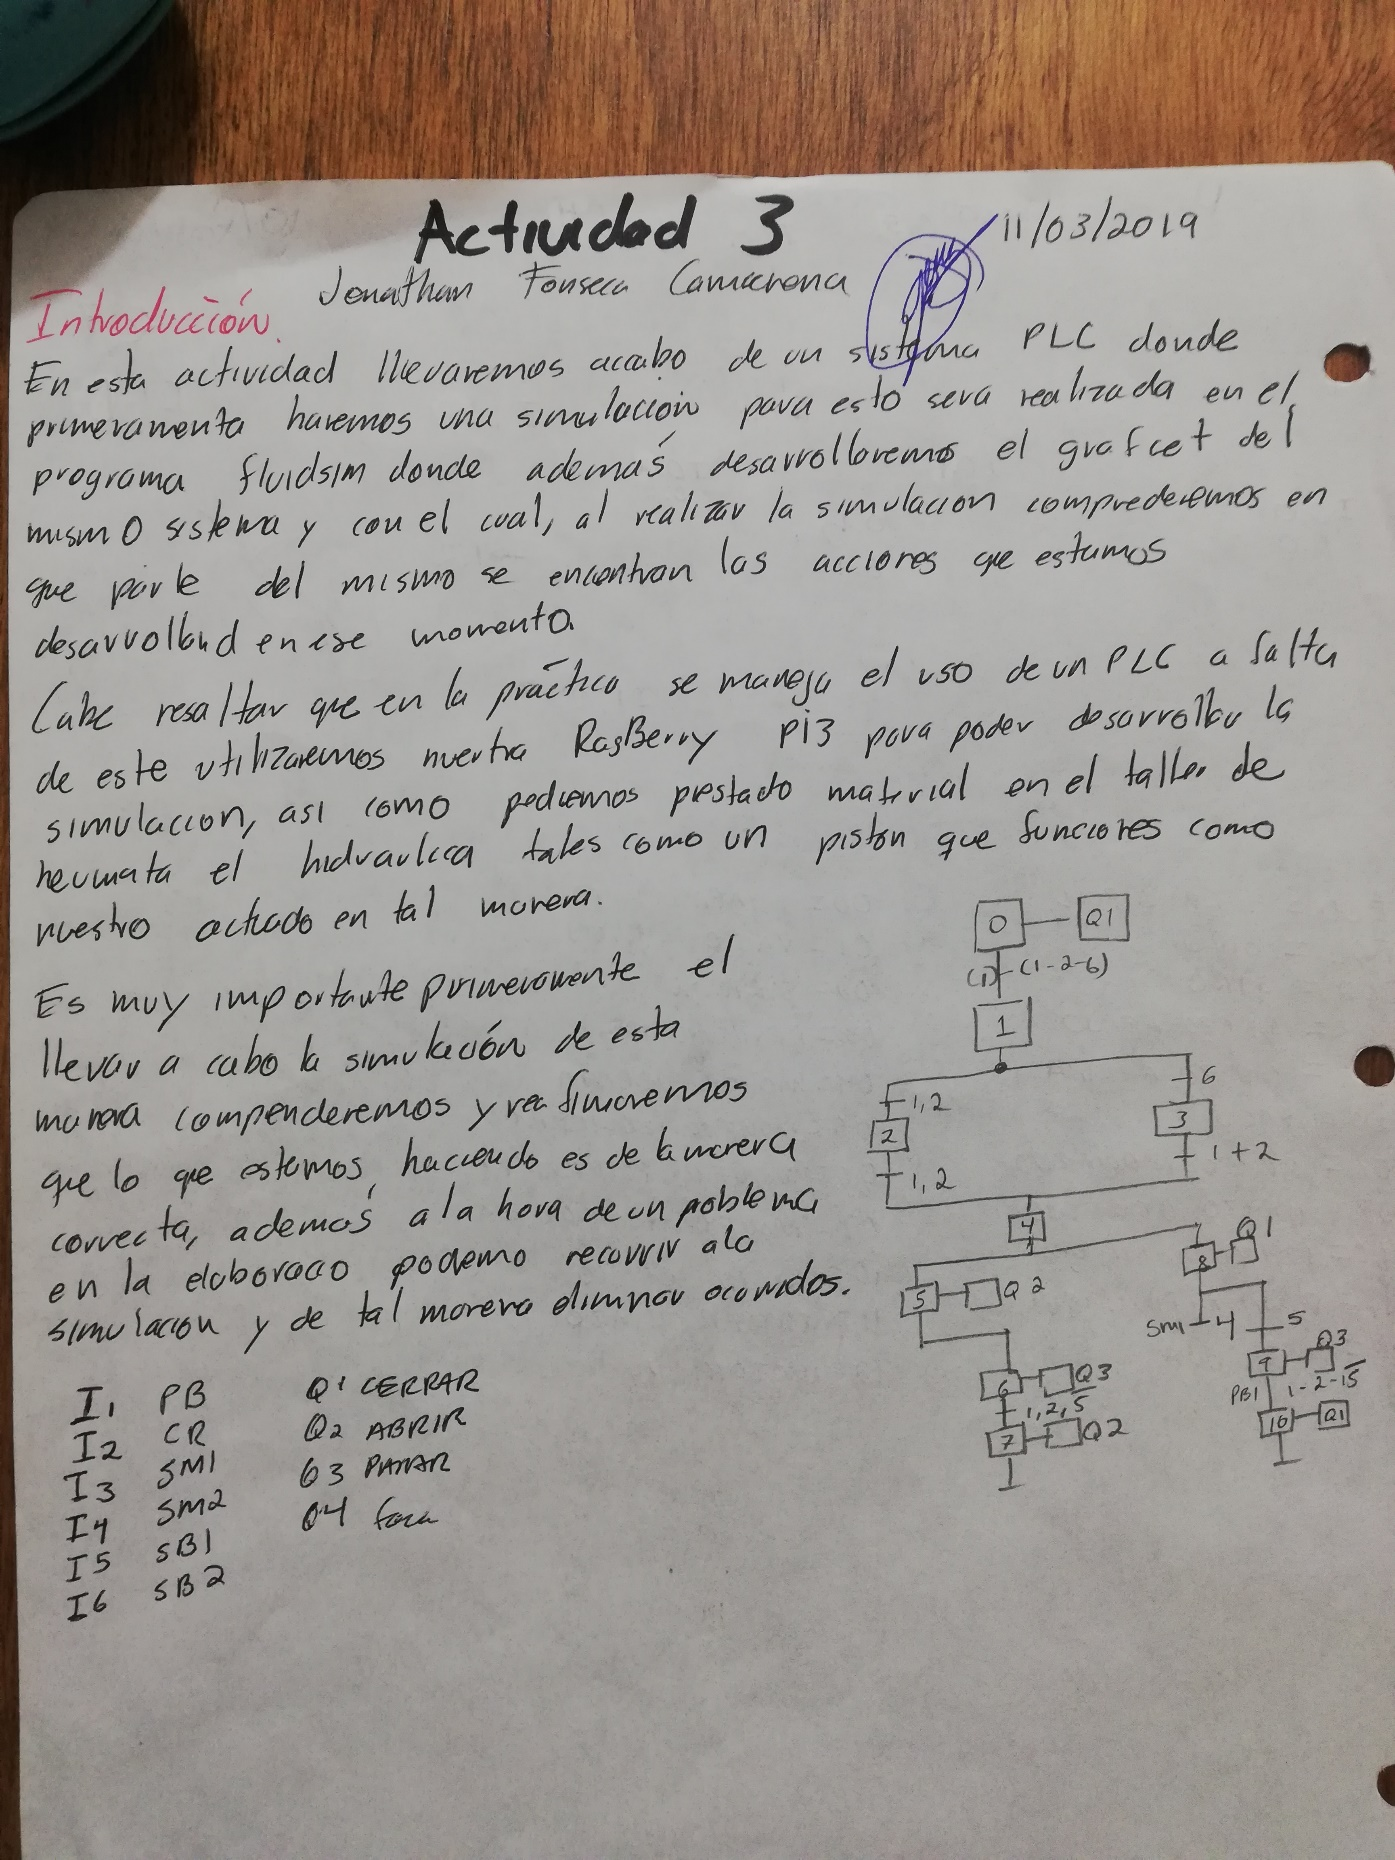 Actividad 3
11/03/2019
Jonathan Fonseca Camarena
Introducción.
En esta actividad llevaremos acabo de un sistema PLC donde
primeramenta haremos una simulación para esto sera realizada en el
programa fluidsim donde ademas desarrollaremos el grafcet del
mismo sistema y con el cual, al realizar la simulacion comprederemos en
que parte del mismo se encentran las acciones que estamos
desarrolland en ese momento.
Cabe resaltar que en la práctica se maneja el uso de un PLC a falta
de este utilizaremos nuertra RasBerry Pi3 para poder desarrollar la
simulacion, asi como pediremos prestado material en el taller de
heumata el hidraulica tales como un piston que funciores como
nuestro actuado en tal manera.
Es muy importante primeramente el
llevar a cabo la simulación de esta
manera compenderemos y reafimaremos
que lo que estamos haciendo es de la manera
correcta, ademas a la hora de un poblema
en la elaboracao podemo recurrir ala
simulacion y de tal manera eliminar ocurridos.
I1 PB Q1 CERRAR
I2 CR Q2 ABRIR
I3 SM1 Q3 PARAR
I4 SM2 Q4 foca
I5 SB1
I6 SB2
0 Q1
(1) (1-2-6)
1
1,2 6
2 3
1,2 1+2
4
5 Q2 8 Q1
SM1 4 5
6 Q3 9 Q3
1,2,5 PB1 1-2-15
7 Q2 10 Q1